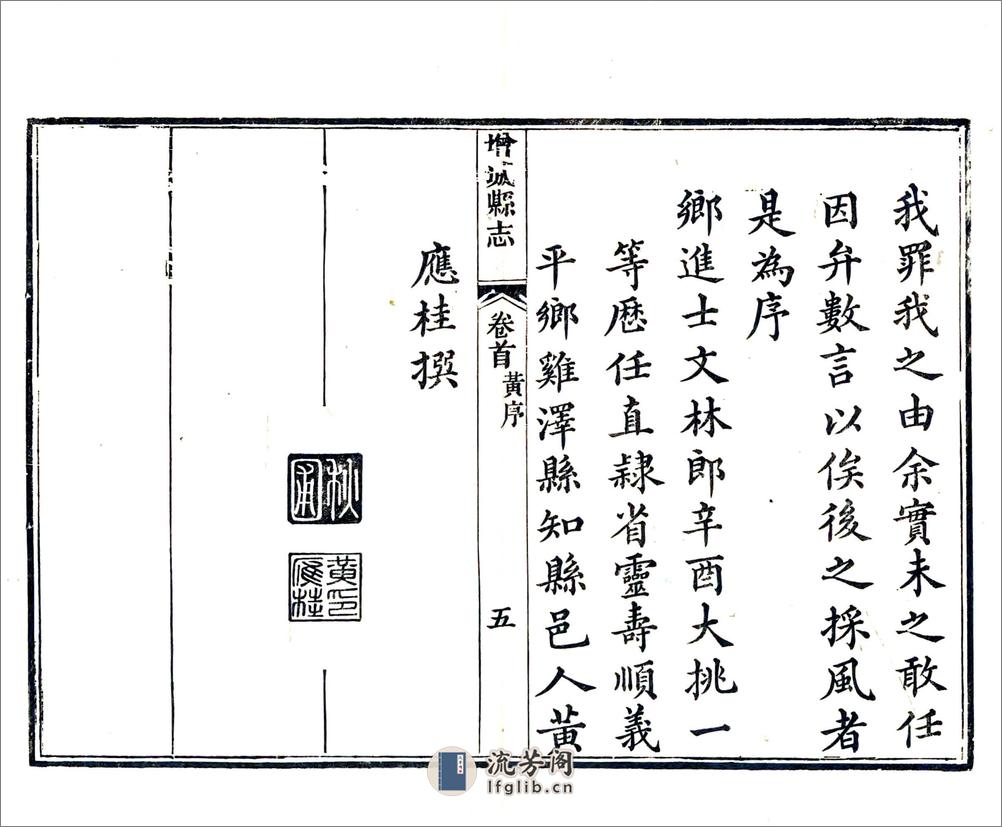 我罪我之由余實未之敢任
因弁數言以俟後之採風者
是為序
鄉進士文林郎辛酉大挑一
等歷任直隸省靈壽順義
平鄉雞澤縣知縣邑人黃
增城縣志
卷首
黃序
五
應桂撰
秋圃
黃應桂印
流芳阁
lfglib.cn